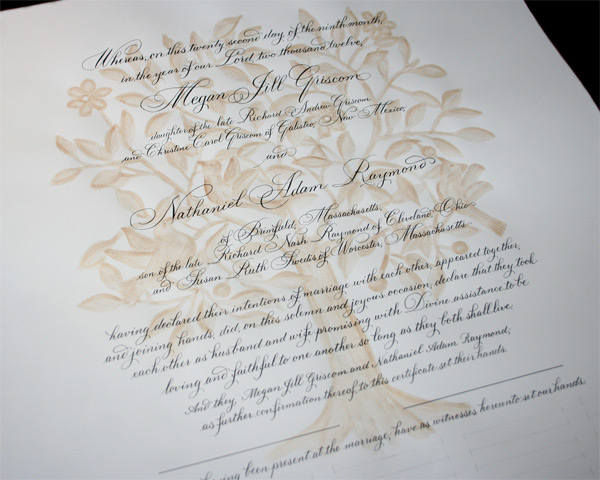 Whereas, on this twenty second day, of the ninth month,
in the year of our Lord, two thousand twelve,
Megan Jill Griscom
daughter of the late Richard Andrew Griscom
and Christine Carol Griscom of Galisteo, New Mexico,
and
Nathaniel Adam Raymond
of Brimfield, Massachusetts,
son of the late Richard Nash Raymond of Cleveland, Ohio
and Susan Ruth Swedis of Worcester, Massachusetts
having declared their intentions of marriage with each other, appeared together,
and joining hands, did, on this solemn and joyous occasion, declare that they took
each other as husband and wife promising with Divine assistance to be
loving and faithful to one another so long as they both shall live.
And they, Megan Jill Griscom and Nathaniel Adam Raymond,
as further confirmation thereof, to this certificate set their hands.
having been present at the marriage, have as witnesses hereunto set our hands.